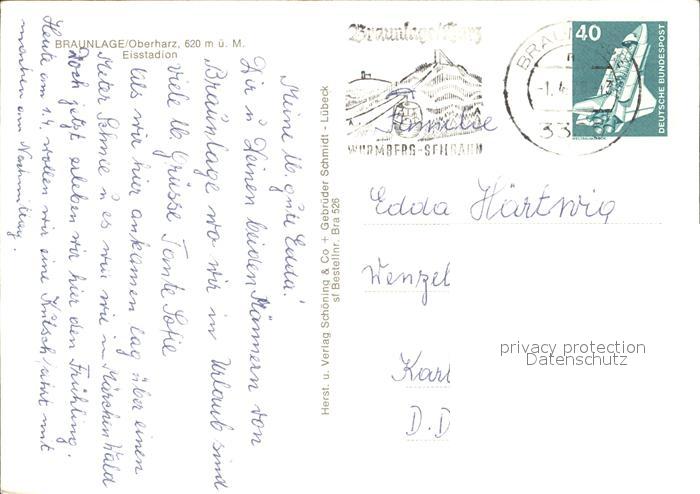 BRAUNLAGE/Oberharz, 620 m ü. M.
Eisstadion
Meine lb. gute Edda!
Dir u Deinen beiden Männern von
Braunlage wo wir in Urlaub sind
viele lb Grüsse Tante Sofie
Als wir hier ankamen lag über einen
Meter Schnee u es war wie im Märchenwald
Doch jetzt erleben wir hier den Frühling.
Heute am 1.4. wollen wir eine fahrt mit
machen am Nachmittag.
Herst. u. Verlag Schöning & Co + Gebrüder Schmidt - Lübeck
sf Bestellnr. Bra 526
Braunlage/Harz
WURMBERG-SEILBAHN
BRAUN
-1.4
33
40
DEUTSCHE BUNDESPOST
Familie
Edda Härtwig
Wenzel
Karl
D.D
privacy protection
Datenschutz